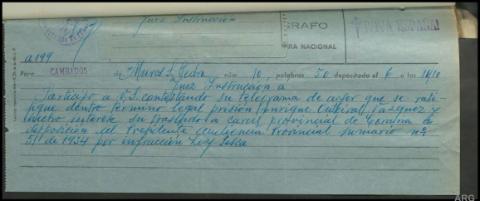 Juez Instrucción
GRAFO
RA NACIONAL
ARRIBA ESPAÑA!
a 199
Para CAMBADOS de Muros S. Pedro núm 10, palabras 50 depositado el 6 a las 14/10
Juez Instrucción a
Participo a V.S. contestando su telegrama de ayer que se rati-
fique dentro término legal prisión Enrique Vázquez y
intereso su traslado a carcel provincial de Coruña a
disposición del Presidente Audiencia Provincial sumario nº
de 1934 por infracción Ley Pesca
ARG